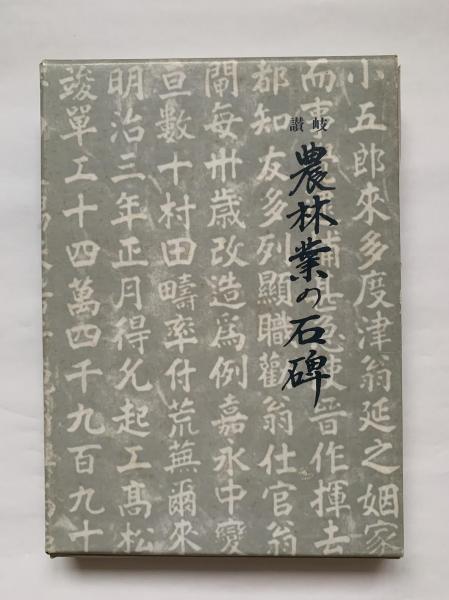 讃岐
農林業の石碑
小五郎來多度津翁延之姻家
而事 晋作揮去
都知友多列顯職勸翁仕官翁
閘每卅歲改造爲例嘉永中變
旦數十村田疇率付荒蕪爾來
明治三年正月得允起工髙松
竣單工十四萬四千九百九十